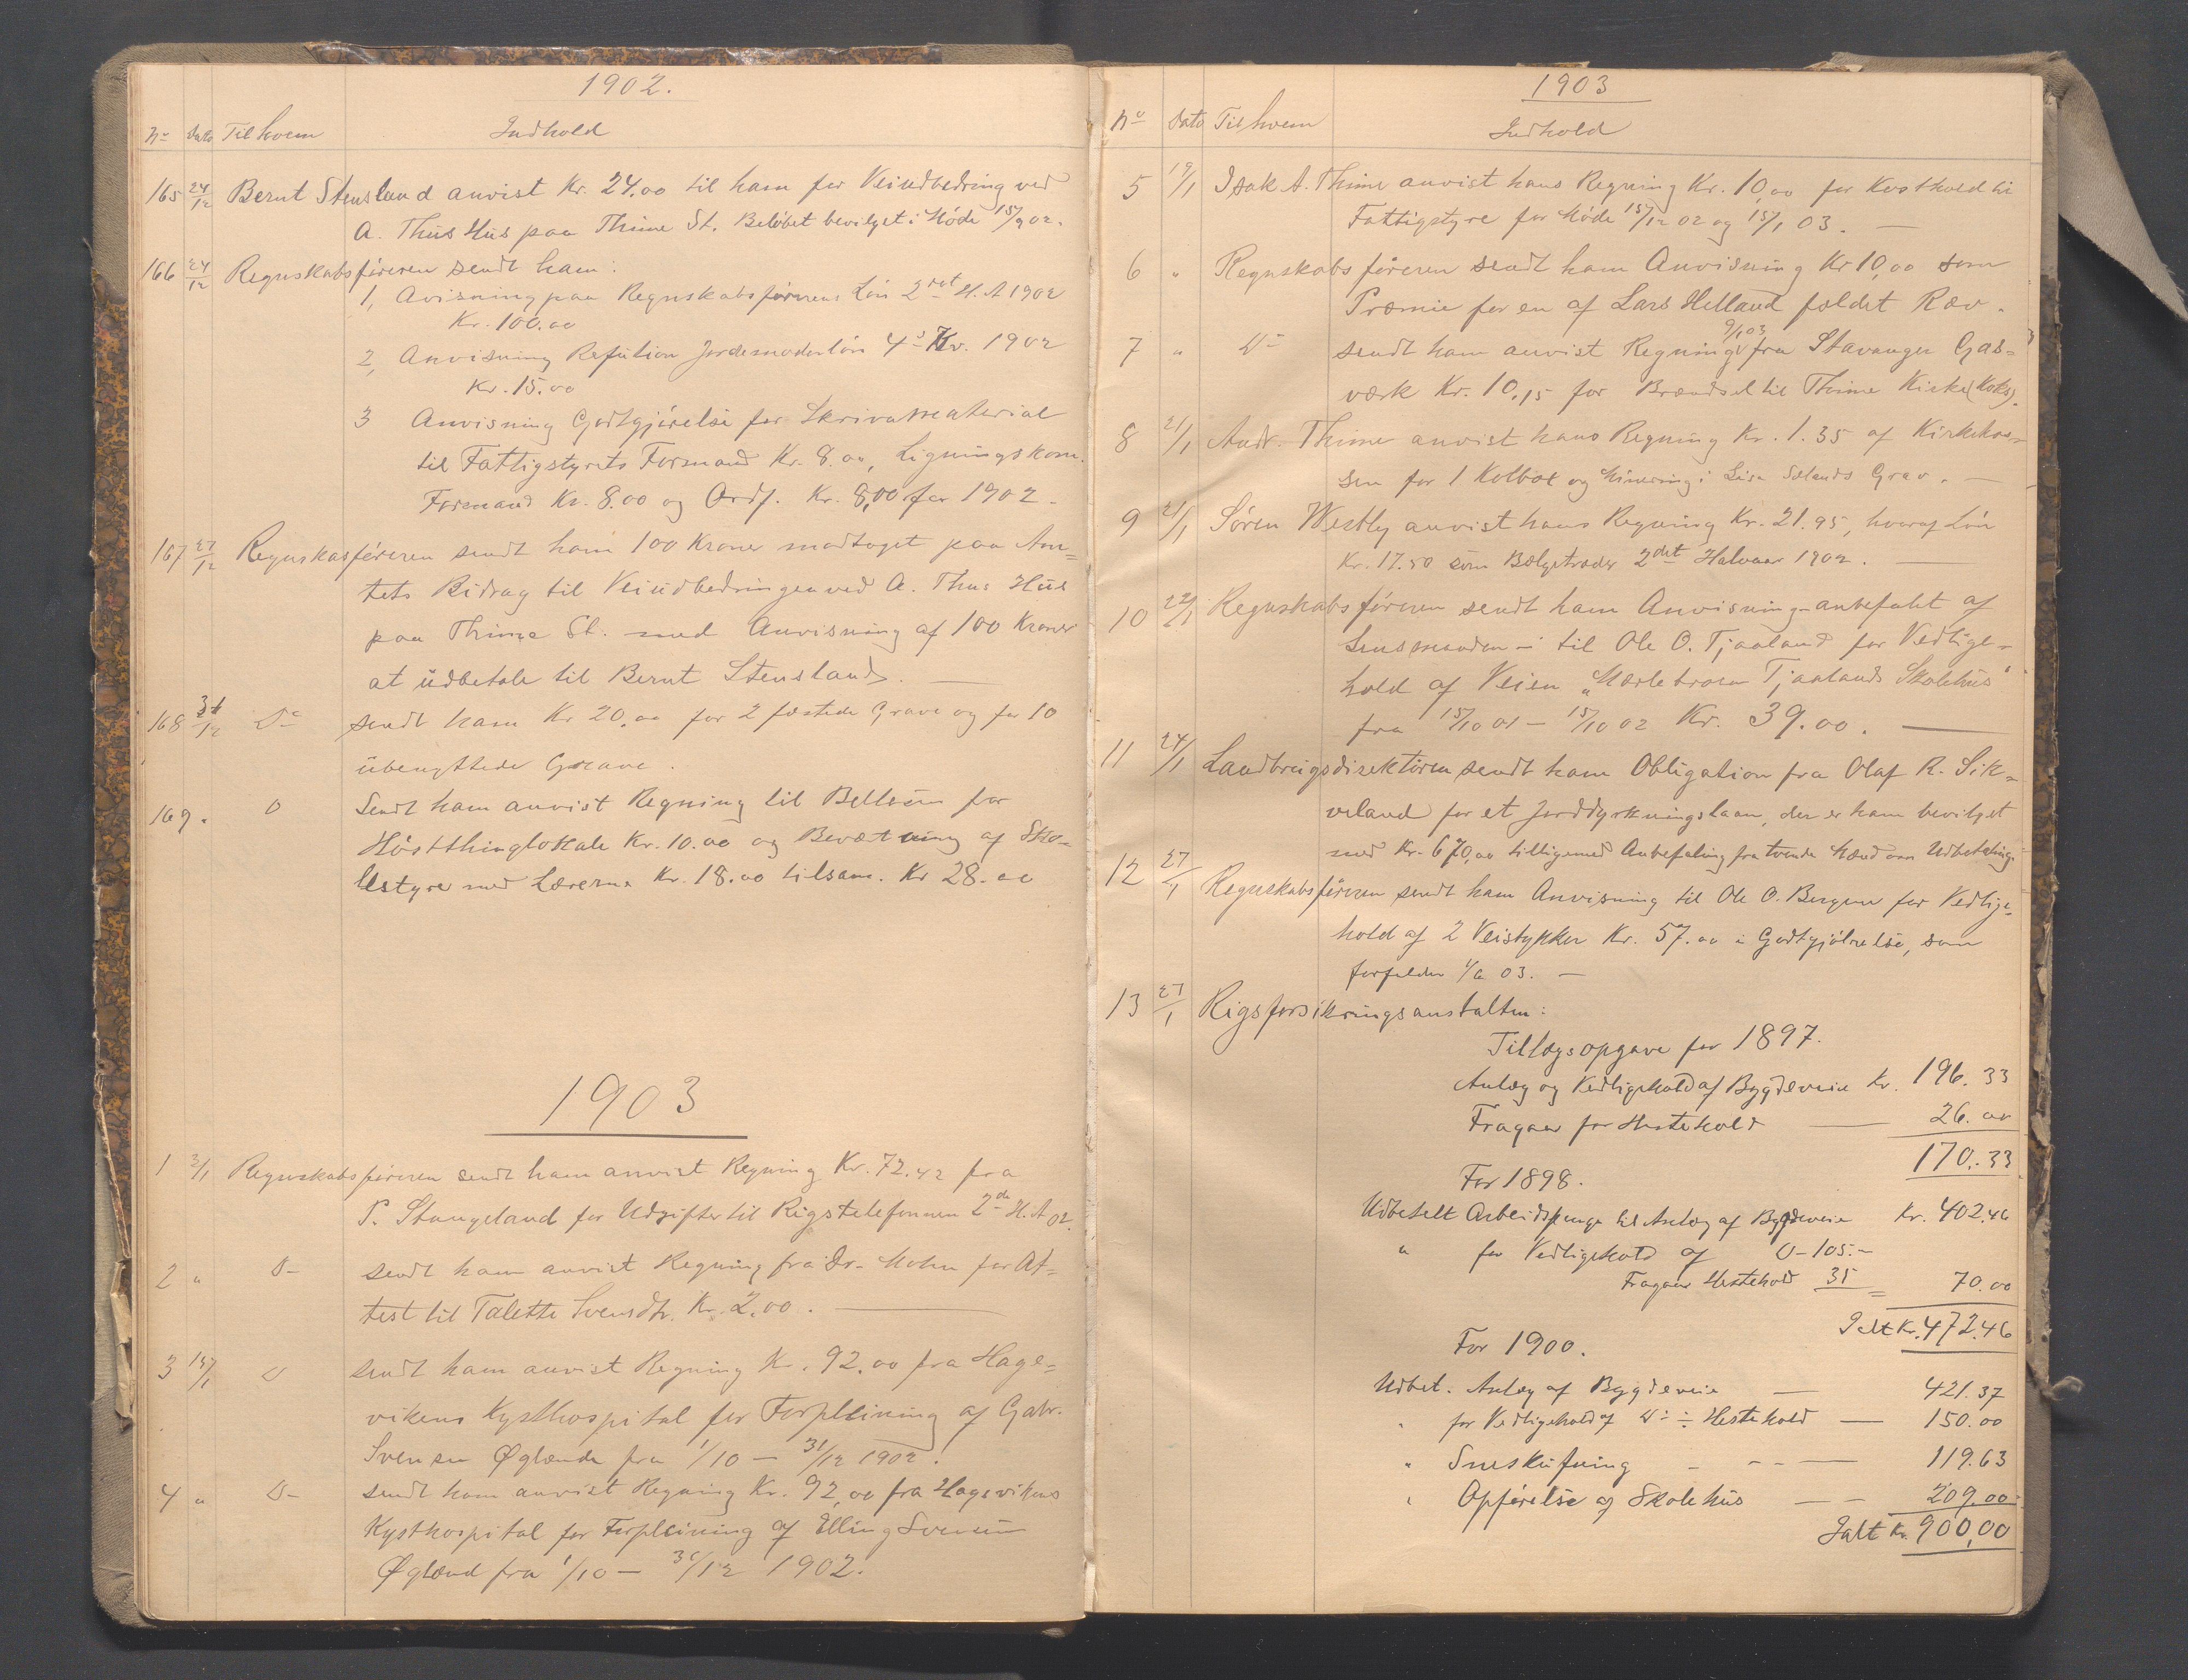 1902.
No Dato Til hvem Indhold
165 24/12 Bernt Stensland anvist Kr. 24.00 til ham for Veiudbedring ved
A. Thus Hus paa Thime St. Beløbet bevilget i Møde 15/9 02.
166 24/12 Regnskabsføreren sendt ham:
1, Avisning paa Regnskabsførerens Løn 2det H.A 1902
Kr. 100.00
2, Anvisning Refution Jordemoderløn 4de Kv. 1902
Kr. 15.00
3 Anvisning Godtgjørelse for Skrivematerial
til Fattigstyrets Formand Kr. 8.00, Ligningskom.
Formand Kr. 8.00 og Ordf. Kr. 8,00 for 1902.
167 27/12 Regnskasføreren sendt ham 100 Kroner modtaget paa Am=
tets Bidrag til Veiudbedringen ved A. Thus Hus
paa Thime St. med Anvisning af 100 Kroner
at udbetale til Bernt Stensland. —
168 31/12 Do sendt ham Kr 20.00 for 2 fæstede Grave og for 10
ubenyttede Grave.
169 . D Sendt ham anvist Regning til Bellesen for
Høstthinglokale Kr. 10.00 og Beværtning af Sko=
lestyre med Lærerne Kr. 18.00 tilsam. Kr 28.00
1903
1 3/1 Regnskabsføreren sendt ham anvist Regning Kr. 72.42 fra
P. Stangeland for Udgifter til Rigstelefonnen 2de H.A 02.
2 " D— sendt ham anvist Regning fra Dr. Mohn for At=
test til Talette Svensdtr. Kr. 2.00. —
3 15/1 D sendt ham anvist Regning Kr. 92.00 fra Hage=
vikens Kysthospital for Forpleining af Gabr.
Svensen Øglænde fra 1/10 — 31/12 1902.
4 " D— sendt ham anvist Regning Kr. 92,00 fra Hagevikens
Kysthospital for Forpleining af Elling Svensen
Øglænd fra 1/10 — 31/12 1902.
1903
No Dato Til hvem Indhold
5 19/1 Isak A. Thime anvist hans Regning Kr. 10,00 for Kosthold til
Fattigstyre for Møde 15/12 02 og 15/1 03. —
6 " Regnskabsføreren sendt ham Anvisning Kr 10,00 som
Præmie for en af Lars Helland fældet Ræv.
7 " Do sendt ham anvist Regning 9/1 03 fra Stavanger Gas=
værk Kr. 10,15 for Brændsel til Thime Kirke (Koks).
8 21/1 Andr. Thime anvist hans Regning Kr. 1.35 af Kirkekas=
sen for 1 Kolbøt og Minering i Lisa Sælands Grav. —
9 21/1 Søren Westly anvist hans Regning Kr. 21.95, hvoraf Løn
Kr. 17.50 som Bælgetræder 2det Halvaar 1902. —
10 22/1 Regnskabsføreren sendt ham Anvisning – anbefalt af
Lensmanden – til Ole O. Tjaaland for Vedlige=
hold af Veien „ Tjaalands Skolehus"
fra 15/10 01 — 15/10 02 Kr. 39.00. —
11 24/1 Landbrugsdirektøren sendt ham Obligation fra Olaf R. Sik=
veland for et Jorddyrkningslaan, der er ham bevilget
med Kr. 670,00 tilligemed Anbefaling fra tvende Mænd om Udbetaling.
12 27/1 Regnskabsføreren sendt ham Anvisning til Ole O. Bergene for Vedlige=
hold af 2 Veistykker Kr. 57.00 i Godtgjølrelse, som
forfalder 1/6 03. —
13 27/1 Rigsforsikringsanstalten:
Tillægsopgave for 1897.
Anlæg og Vedligehold af Bygdeveie Kr. 196.33
Fragaar for Hestehold — 26.00
170.33
For 1898.
Udbetalt Arbeidspenge til Anlæg af Bygdeveie Kr. 402.46
" for Vedligehold af D— 105.–
Fragaar Hestehold 35 = 70.00
Ialt Kr. 472.46
For 1900.
Udbet. Anlæg af Bygdeveie — 421.37
" for Vedligehold af Do ÷ Hestehold — 150.00
" Sneskufning — 119.63
" Opførelse af Skolehus — 209.00
Ialt Kr. 900,00